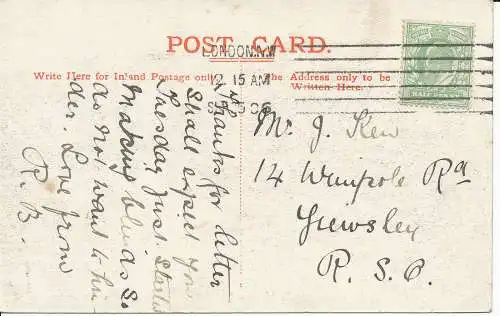 POST CARD.
LONDON.N.W
12 15 AM
06
Write Here for Inland Postage only.
The Address only to be
Written Here.
Thanks for letter
Shall expect you
Tuesday Just Started
Making blinds So
do not want to hin-
der. Love from
R. B.
Mr J. Kew
14 Wimpole Rd
Yiewsley
R. S. O.